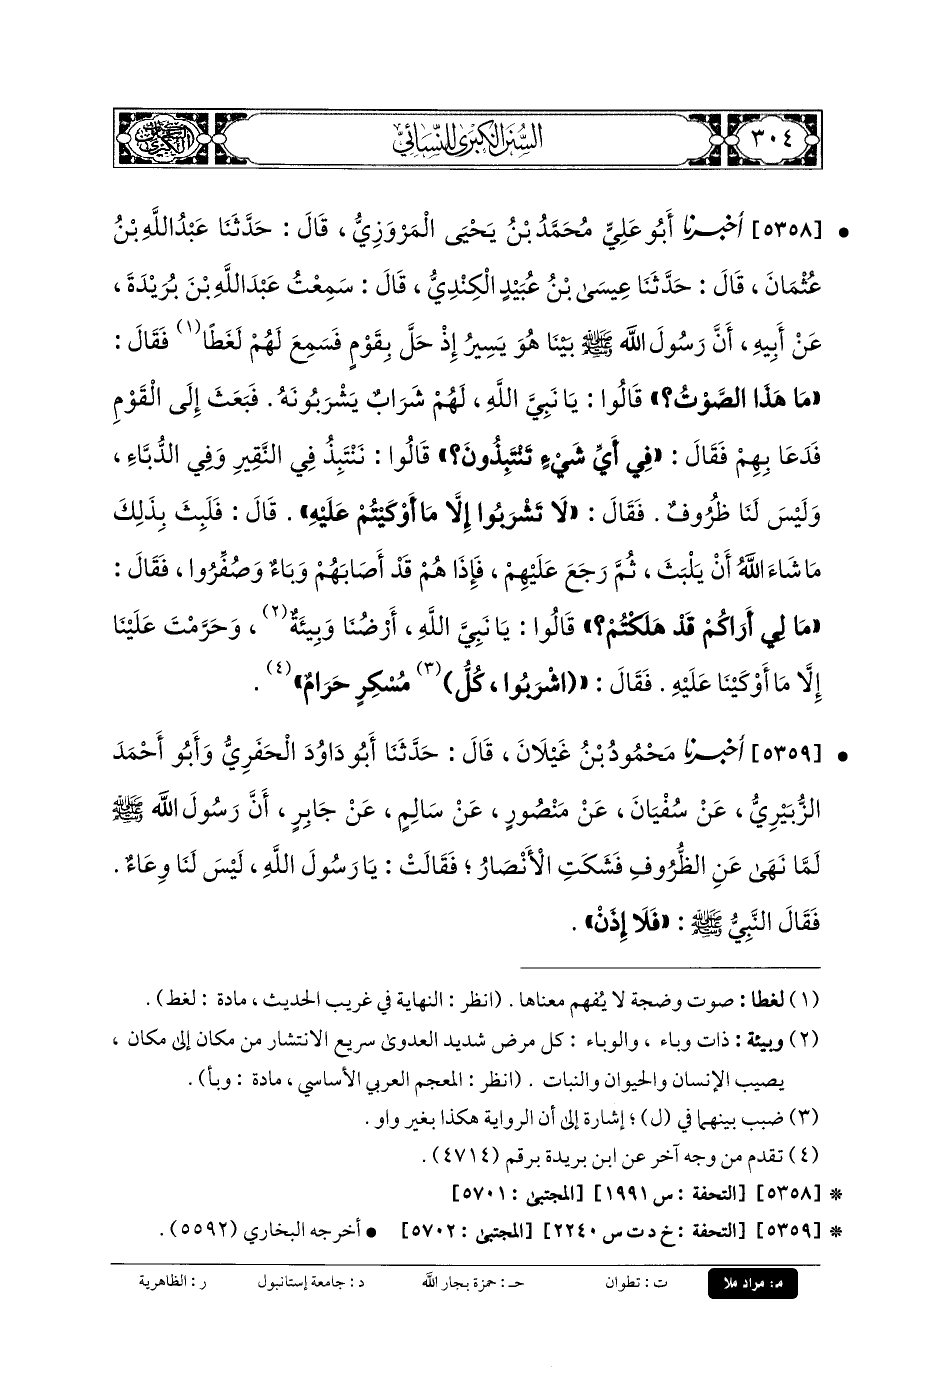 ٣٠٤
السنن الكبرى للنسائي
• [٥٣٥٨] أخبرنا أَبُو عَلِيٍّ مُحَمَّدُ بْنُ يَحْيَى الْمَرْوَزِيُّ ، قَالَ : حَدَّثَنَا عَبْدُاللَّهِ بْنُ
عُثْمَانَ ، قَالَ : حَدَّثَنَا عِيسَىٰ بْنُ عُبَيْدٍ الْكِنْدِيُّ ، قَالَ : سَمِعْتُ عَبْدَاللَّهِ بْنَ بُرَيْدَةَ ،
عَنْ أَبِيهِ ، أَنَّ رَسُولَ اللَّه ﷺ بَيْنَا هُوَ يَسِيرُ إِذْ حَلَّ بِقَوْمٍ فَسَمِعَ لَهُمْ لَغَطًا(١) فَقَالَ :
«مَا هَذَا الصَّوْتُ؟» قَالُوا : يَا نَبِيَّ اللَّهِ ، لَهُمْ شَرَابٌ يَشْرَبُونَهُ . فَبَعَثَ إِلَى الْقَوْمِ
فَدَعَا بِهِمْ فَقَالَ : «فِي أَيِّ شَيْءٍ تَنْتَبِذُونَ؟» قَالُوا : نَنْتَبِذُ فِي النَّقِيرِ وَفِي الدُّبَّاءِ ،
وَلَيْسَ لَنَا ظُرُوفٌ . فَقَالَ : «لَا تَشْرَبُوا إِلَّا مَا أَوْكَيْتُمْ عَلَيْهِ» . قَالَ : فَلَبِثَ بِذَلِكَ
مَا شَاءَ اللَّهُ أَنْ يَلْبَثَ ، ثُمَّ رَجَعَ عَلَيْهِمْ ، فَإِذَا هُمْ قَدْ أَصَابَهُمْ وَبَاءٌ وَصُفِّرُوا ، فَقَالَ :
«مَا لِي أَرَاكُمْ قَدْ هَلَكْتُمْ؟» قَالُوا : يَا نَبِيَّ اللَّهِ ، أَرْضُنَا وَبِيئَةٌ(٢) ، وَحَرَّمْتَ عَلَيْنَا
إِلَّا مَا أَوْكَيْنَا عَلَيْهِ . فَقَالَ : «(اشْرَبُوا ، كُلُّ)(٣) مُسْكِرٍ حَرَامٌ»(٤) .
• [٥٣٥٩] أخبرنا مَحْمُودُ بْنُ غَيْلَانَ ، قَالَ : حَدَّثَنَا أَبُو دَاوُدَ الْحَفَرِيُّ وَأَبُو أَحْمَدَ
الزُّبَيْرِيُّ ، عَنْ سُفْيَانَ ، عَنْ مَنْصُورٍ ، عَنْ سَالِمٍ ، عَنْ جَابِرٍ ، أَنَّ رَسُولَ اللَّه ﷺ
لَمَّا نَهَىٰ عَنِ الظُّرُوفِ فَشَكَتِ الْأَنْصَارُ ؛ فَقَالَتْ : يَا رَسُولَ اللَّهِ ، لَيْسَ لَنَا وِعَاءٌ .
فَقَالَ النَّبِيُّ ﷺ : «فَلَا إِذَنْ» .
(١) لغطا : صوت وضجة لا يُفهم معناها . (انظر : النهاية في غريب الحديث ، مادة : لغط) .
(٢) وبيئة : ذات وباء ، والوباء : كل مرض شديد العدوىٰ سريع الانتشار من مكان إلى مكان ،
يصيب الإنسان والحيوان والنبات . (انظر : المعجم العربي الأساسي ، مادة : وبأ) .
(٣) ضبب بينهما في (ل) ؛ إشارة إلى أن الرواية هكذا بغير واو .
(٤) تقدم من وجه آخر عن ابن بريدة برقم (٤٧١٤) .
* [٥٣٥٨] [التحفة : س ١٩٩١] [المجتبىٰ : ٥٧٠١]
* [٥٣٥٩] [التحفة : خ د ت س ٢٢٤٠] [المجتبىٰ : ٥٧٠٢] • أخرجه البخاري (٥٥٩٢) .
م: مراد ملا ت : تطوان حـ : حمزة بجار الله د : جامعة إستانبول ر : الظاهرية